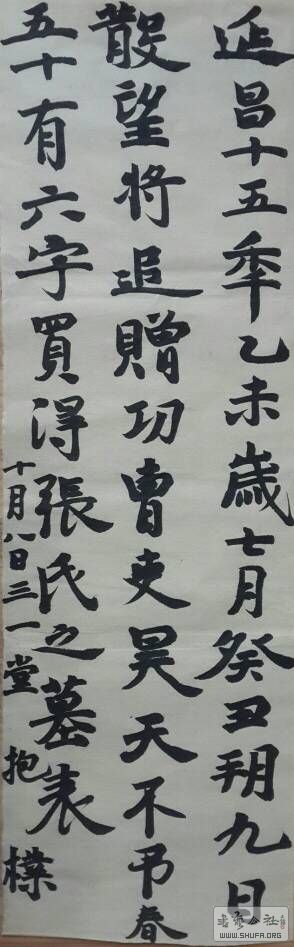 延昌十五年乙未歲七月癸丑朔九日
散望将追贈功曹吏昊天不弔春
五十有六字買得張氏之墓表
十月八日三一堂抱樸
書法公社
WWW.SHUFA.ORG